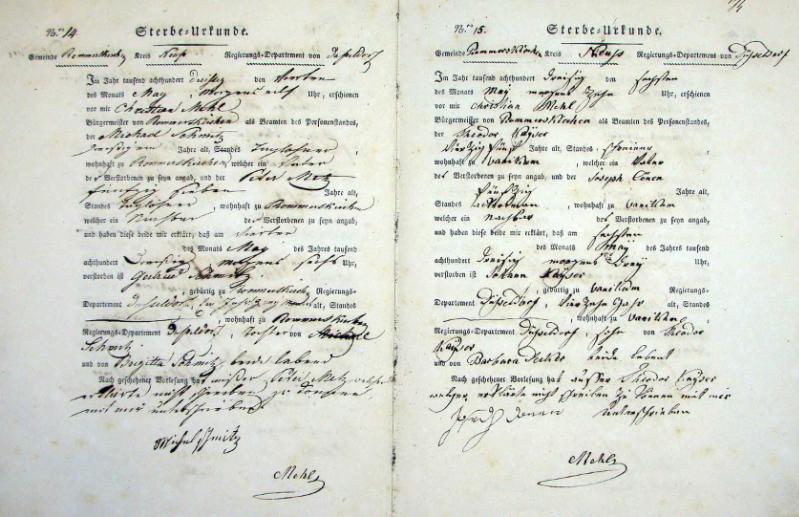 No. 14.
Sterbe=Urkunde.
Gemeinde Rommerskirchen Kreis Neuss Regierungs=Departement von Düsseldorf
Im Jahr tausend achthundert dreisig den vierten
des Monats May morgens eilf Uhr, erschienen
vor mir Christian Mehl
Bürgermeister von Rommerskirchen als Beamten des Personenstandes,
der Michael Schmitz
Jahre alt, Standes Taglöhner
wohnhaft zu Rommerskirchen welcher ein Vater
des Verstorbenen zu seyn angab, und der Peter Metz
fünfzig sieben Jahre alt,
Standes Taglöhner, wohnhaft zu Rommerskirchen
welcher ein Nachbar des Verstorbenen zu seyn angab,
und haben diese beide mir erklärt, daß am vierten
des Monats May des Jahres tausend
achthundert Dreisig morgens sechs Uhr,
verstorben ist Gertrud Schmitz
, gebürtig zu Rommerskirchen Regierungs=
Departement Düsseldorf, alt, Standes
, wohnhaft zu Rommerskirchen
Regierungs=Departement Düsseldorf, Tochter von Michael
Schmitz
und von Brigitta Schmitz beide lebend
Nach geschehener Vorlesung hat ausser Peter Metz welcher
erklärte nicht schreiben zu können
mit mir unterschrieben
Michel Schmitz
Mehl
No. 15.
Sterbe=Urkunde.
Gemeinde Rommerskirchen Kreis Neuss Regierungs=Departement von Düsseldorf
Im Jahr tausend achthundert dreisig den sechsten
des Monats May morgens zehn Uhr, erschienen
vor mir Christian Mehl
Bürgermeister von Rommerskirchen als Beamten des Personenstandes,
der Theodor Kayser
vierzig fünf Jahre alt, Standes Schreiner
wohnhaft zu Vanikum, welcher ein Vater
des Verstorbenen zu seyn angab, und der Joseph Conen
fünfzig Jahre alt,
Standes Ackersman, wohnhaft zu Vanikum
welcher ein Nachbar des Verstorbenen zu seyn angab,
und haben diese beide mir erklärt, daß am sechsten
des Monats May des Jahres tausend
achthundert dreisig morgens drey Uhr,
verstorben ist Kayser
, gebürtig zu Vanikum Regierungs=
Departement Düsseldorf, vierzehn Jahr alt, Standes
, wohnhaft zu Vanikum
Regierungs=Departement Düsseldorf, Sohn von Theodor
Kayser
und von Barbara beide lebend
Nach geschehener Vorlesung hat ausser Theodor Kayser
welcher erklärte nicht schreiben zu können mit mir
Joseph Conen unterschrieben
Mehl